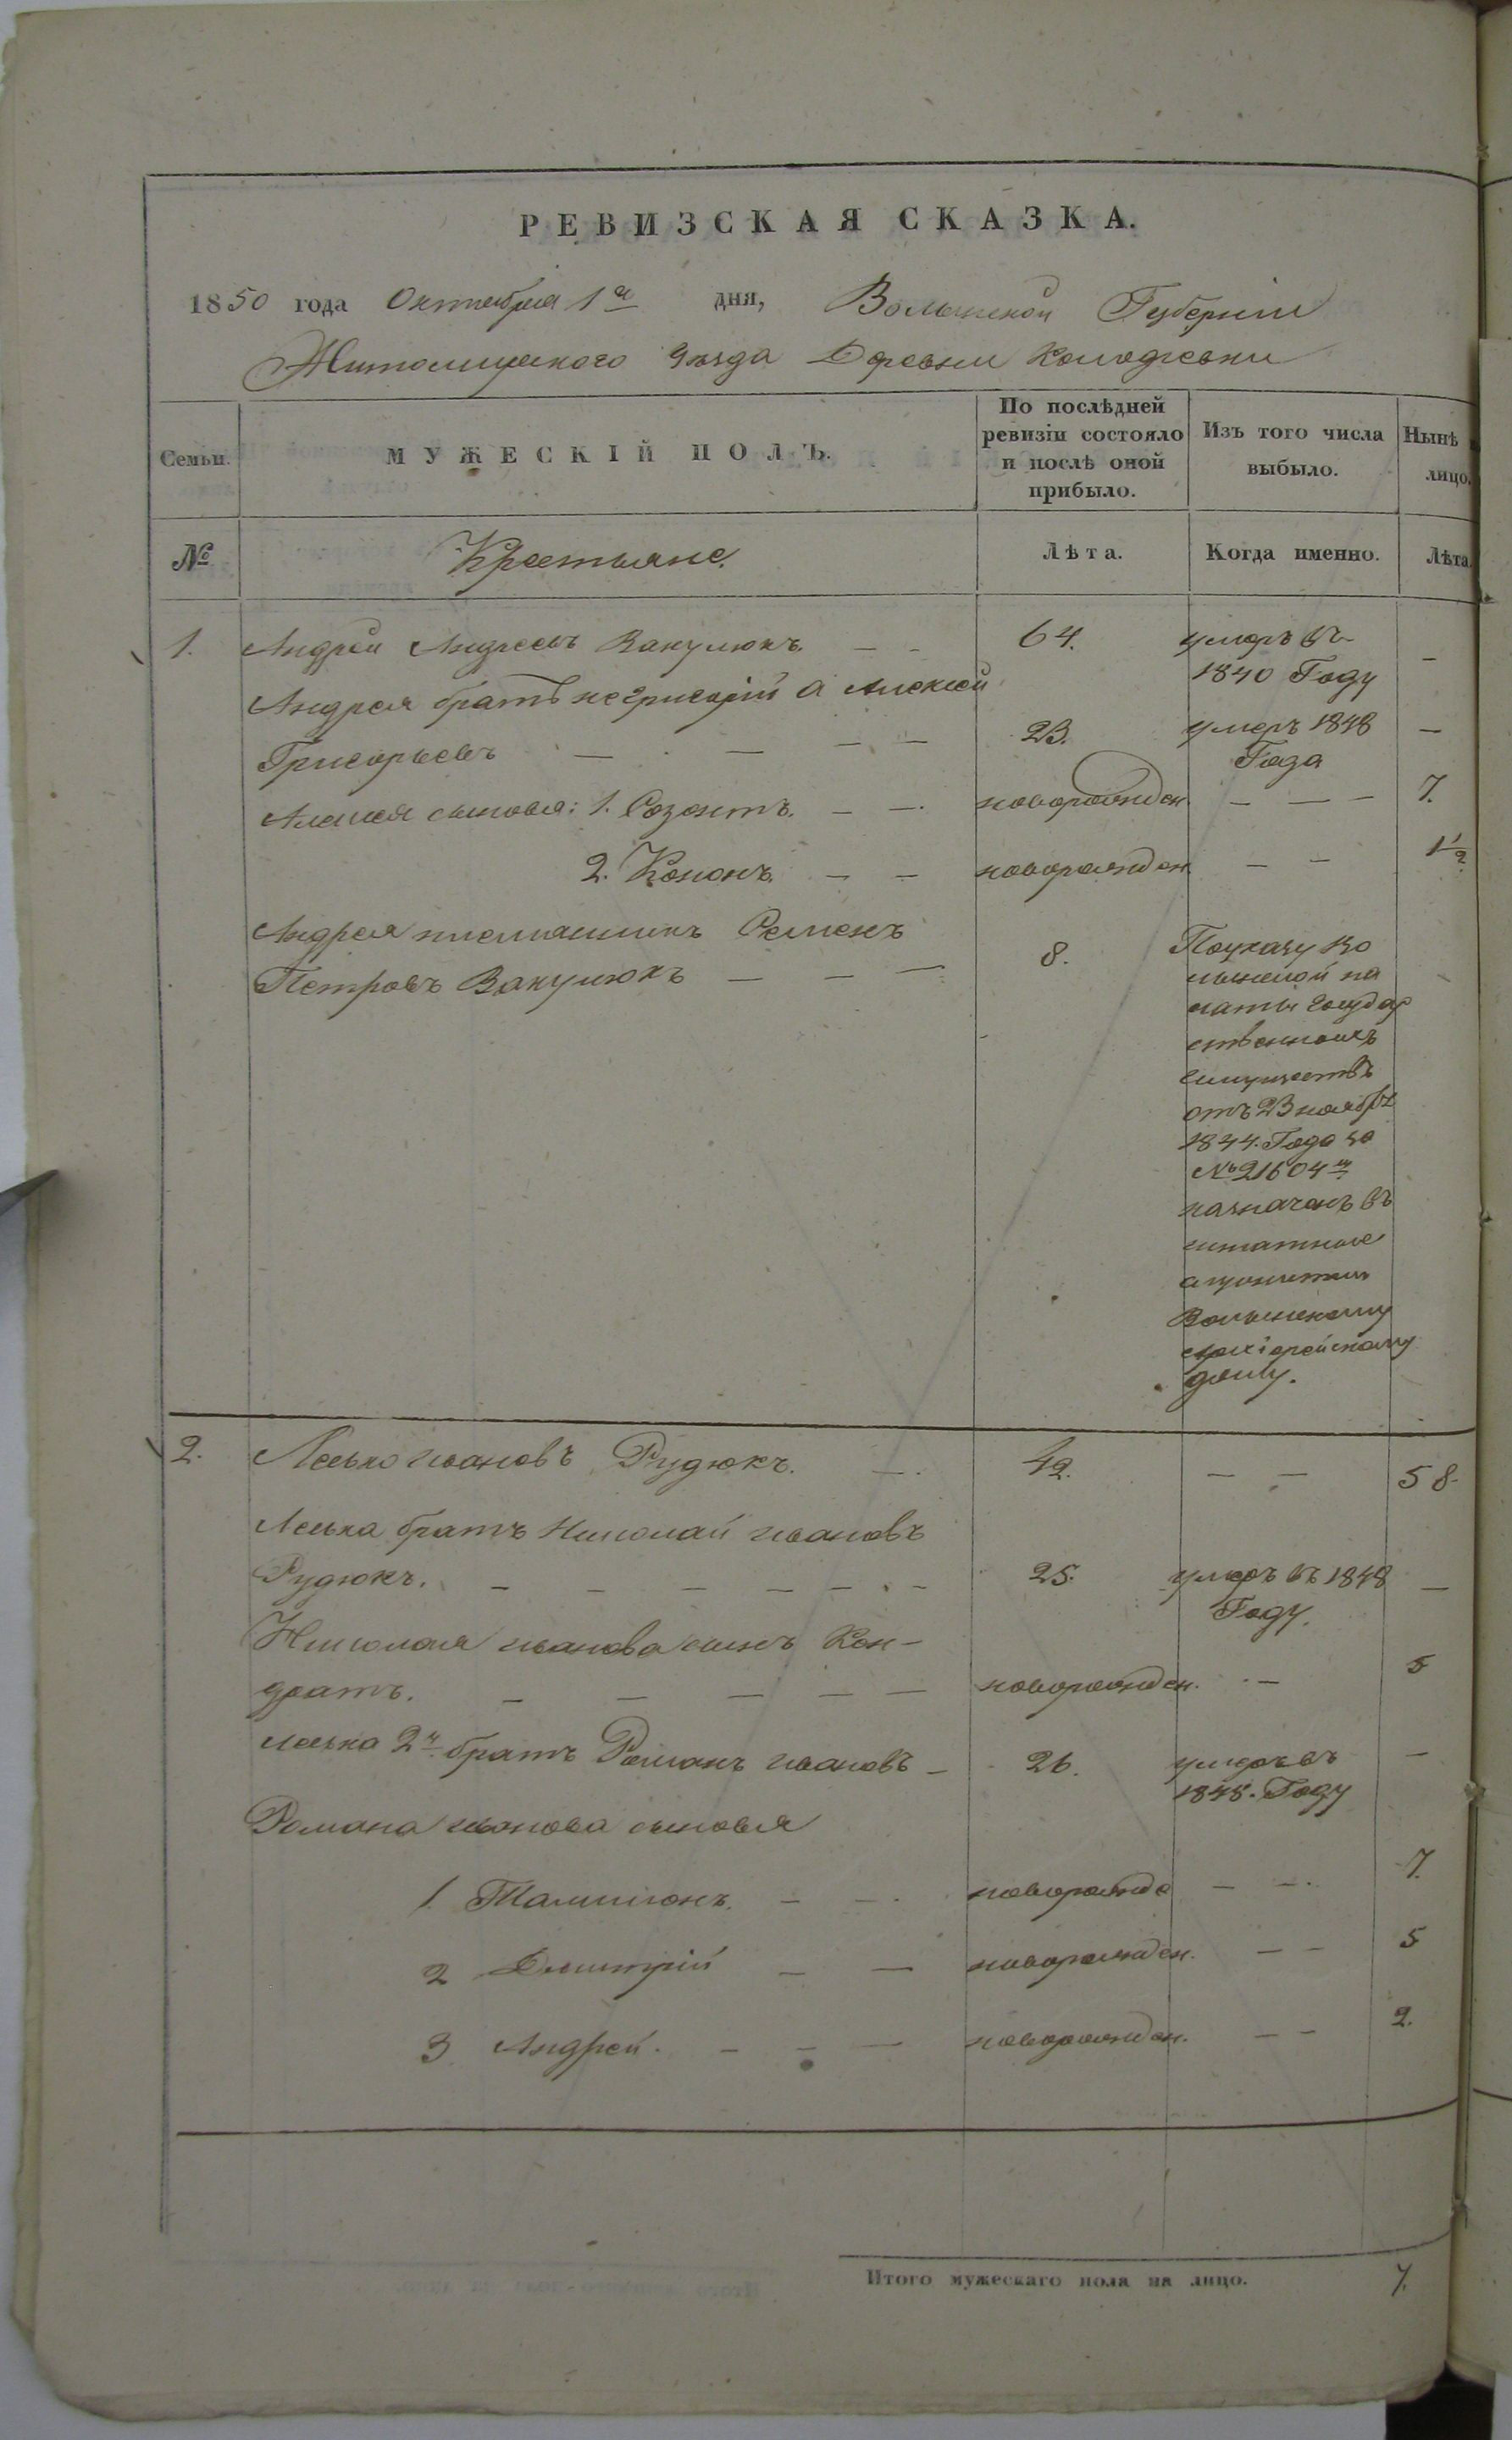 РЕВИЗСКАЯ СКАЗКА.
1850 года Октября 1го дня, Волынской Губерніи
Житомирского Уезда Деревни Колодіевки
Семьи. МУЖЕСКІЙ ПОЛЪ. По послѣдней ревизіи состояло и послѣ оной прибыло. Изъ того числа выбыло. Нынѣ лицо.
№ Крестьяне. Лѣта. Когда именно. Лѣта
1. Андрей Андреевъ Вакулюкъ. — — 64. умеръ въ —
1840 Году
Андрея братъ не Григорій а Алексей
Григорьевъ — — — — 23. умеръ 1848 —
Года
Алексея сыновья: 1. Созонтъ. — — новорожден. — — — 7.
2. Кононъ. — — новорожден. — — 1 1/2
Андрея племянникъ Семенъ
Петровъ Вакулюкъ — — — 8. По указу Во
лынской па
латы Государ
ственныхъ
имуществъ
отъ 23 ноября
1844. Года за
№ 21604м
назначенъ въ
штатные
служители
Волынскому
архіерейскому
дому.
2. Лесько Ивановъ Рудюкъ. — 42. — — 58.
Леська братъ Николай Ивановъ
Рудюкъ. — — — — — — 25. умеръ въ 1848 —
Году.
Николая Иванова сынъ Кон-
дратъ. — — — — — новорожден. — 5
Леська 2й братъ Романъ Ивановъ — 26. умеръ въ —
1848. Году
Романа Иванова сыновья
1. — — новорожде — — 7.
2 Дмитрій — — новорожден. — — 5
3 Андрей. — — — новорожден. — — 2.
Итого мужескаго пола на лицо. 7.